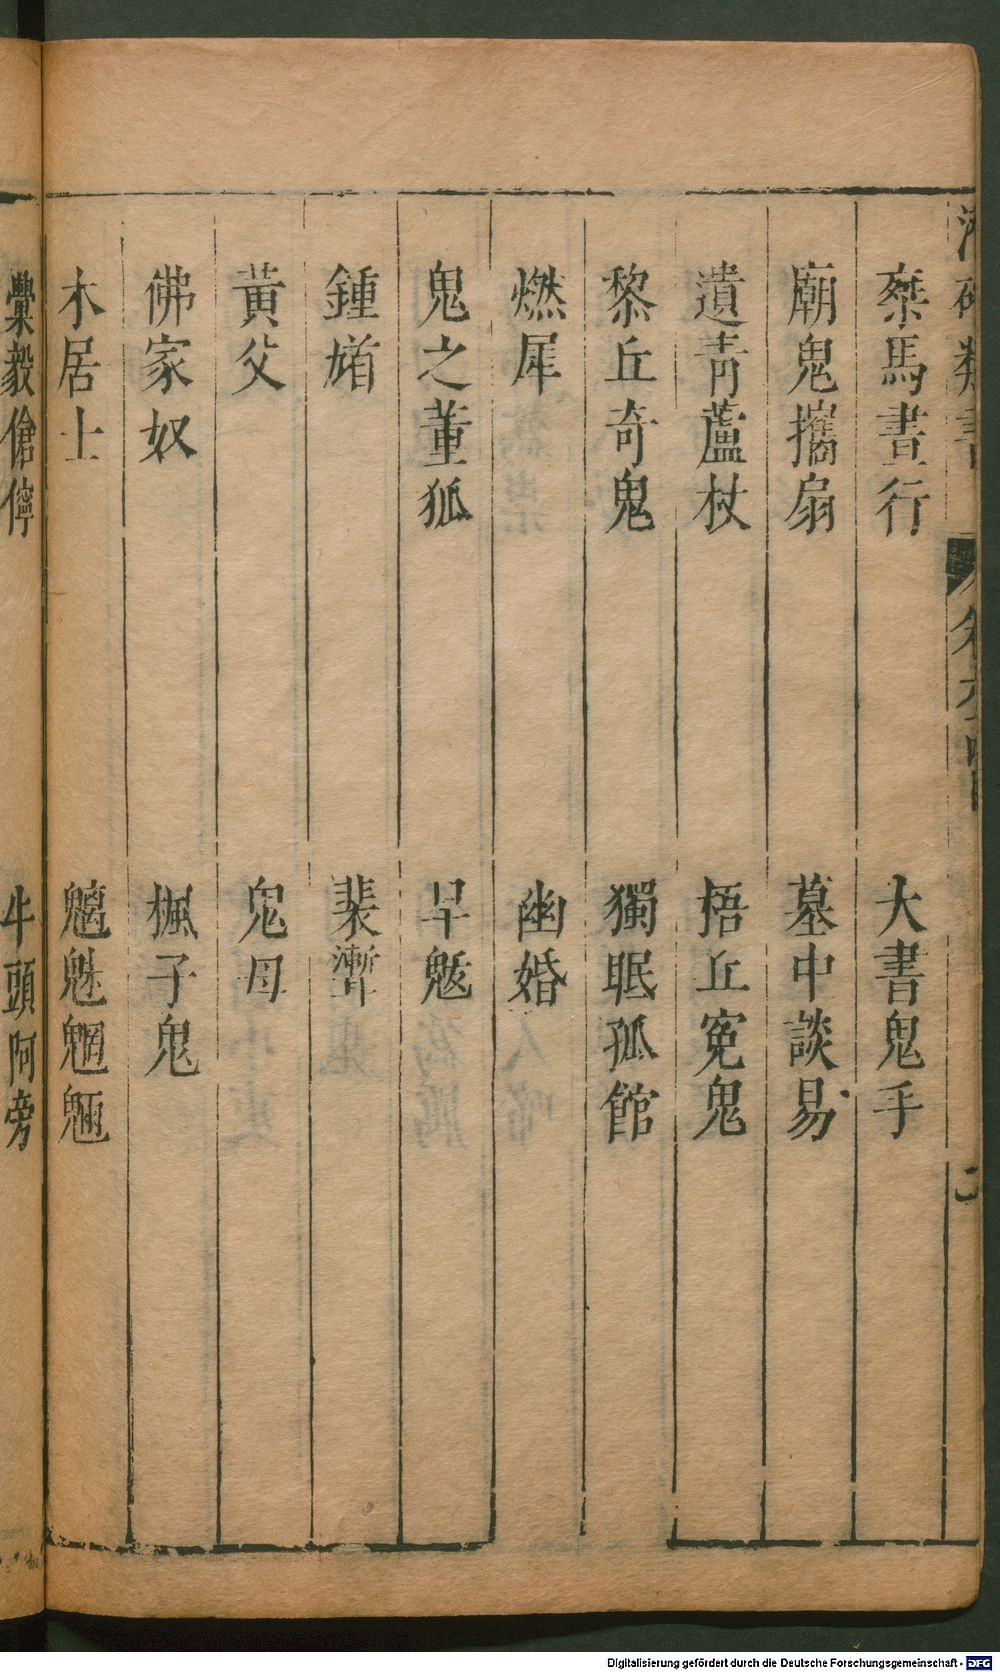 桀馬書行
大書鬼手
廟鬼攜扇
墓中談易
遺青蘆杖
梧丘冤鬼
黎丘奇鬼
獨眠孤館
燃犀
幽婚
鬼之董狐
旱魃
鍾馗
裴漸
黃父
鬼母
佛家奴
楓子鬼
木居士
魑魅魍魎
毅傖儜
牛頭阿旁
Digitalisierung gefördert durch die Deutsche Forschungsgemeinschaft - DFG